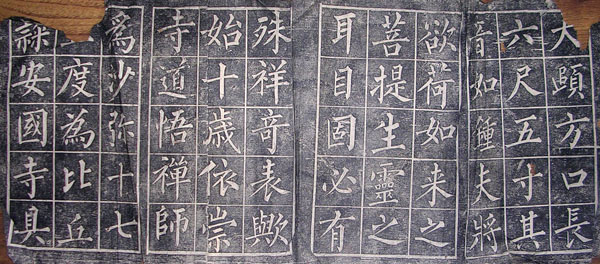 大頤方口長
六尺五寸其
音如鍾夫將
欲荷如来之
菩提生靈之
耳目固必有
殊祥竒表歟
始十歳依崇
寺道悟禪師
為沙弥十七
度為比丘
隸安國寺具